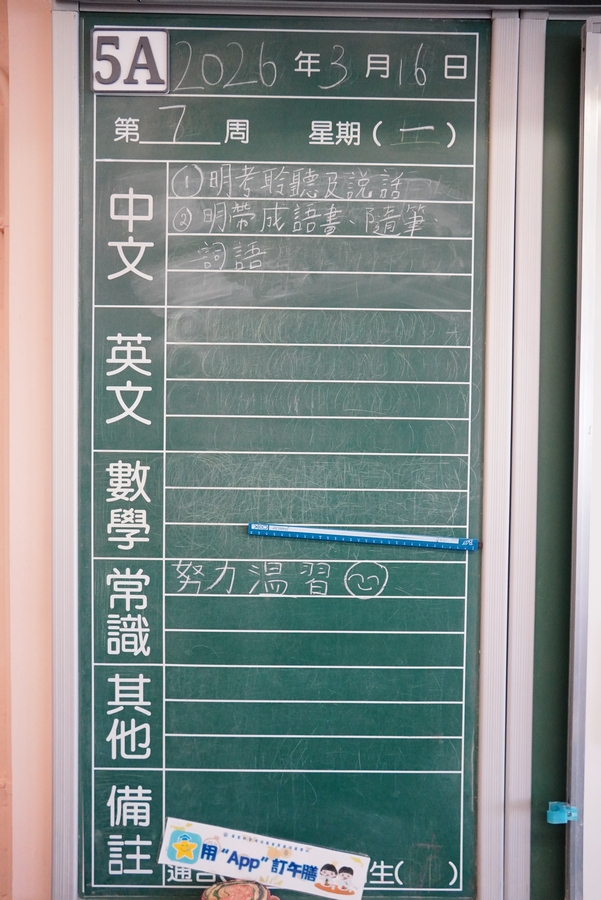 5A 2026 年 3 月 16 日
第 7 周 星期 ( 一 )
中文
① 明考聆聽及說話
② 明帶成語畫、隨筆、
詞語
英文
數學
常識
努力溫習
其他
備註
用 “App” 訂午膳
生( )